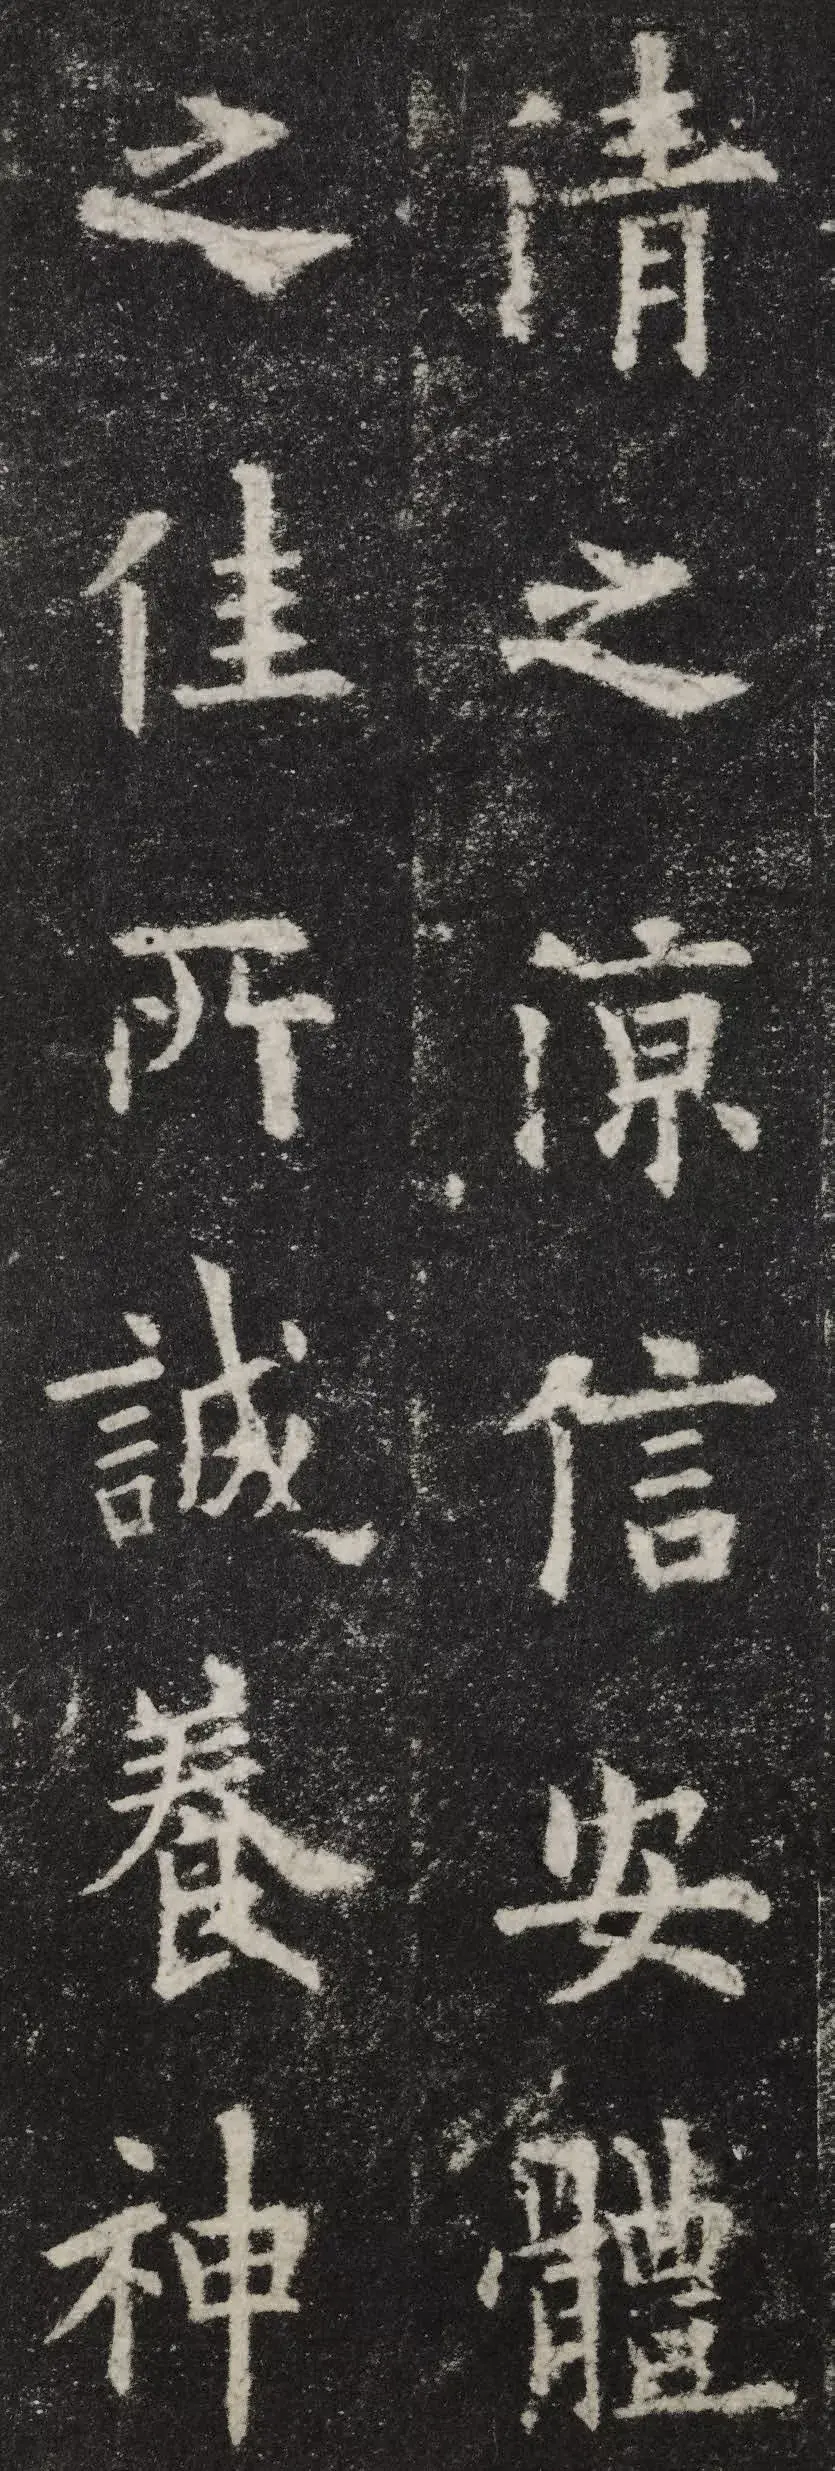 清之涼信安體
之佳所誠養神